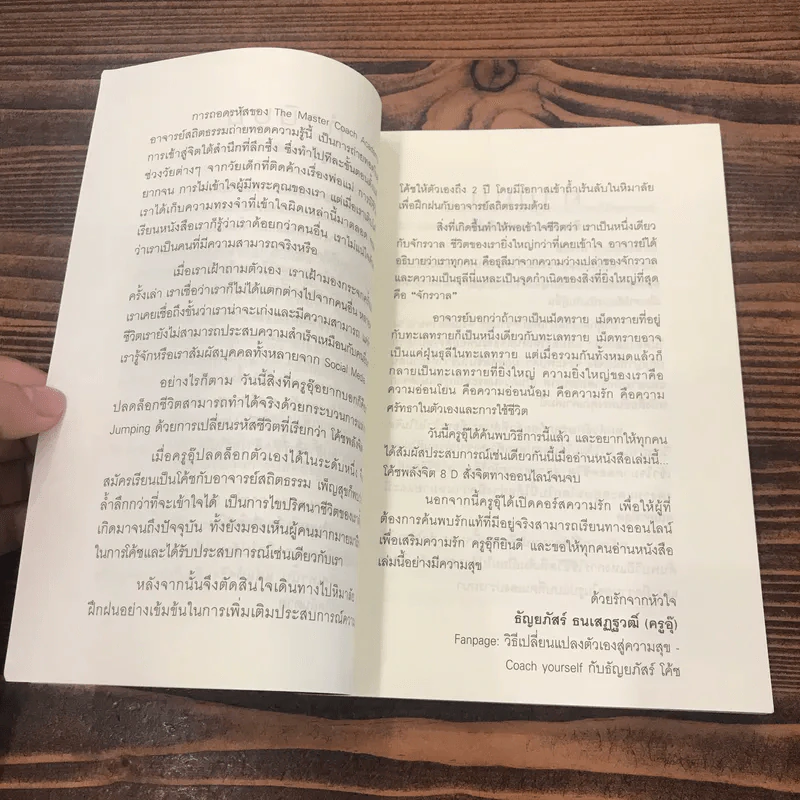 การถอดรหัสของ The Master Coach
อาจารย์สถิตธรรมถ่ายทอดความรู้นี้ เป็นการถ่ายทอด
การเข้าสู่จิตใต้สำนึกที่ลึกซึ้ง ซึ่งทำไปทีละขั้นตอน
ช่วงวัยต่างๆ จากวัยเด็กที่ติดค้างเรื่องพ่อแม่
ยากจน การไม่เข้าใจผู้มีพระคุณของเรา แต่เมื่อเรา
เราได้เก็บความทรงจำที่เข้าใจผิดเหล่านี้มาตลอด
เรียนหนังสือเราก็รู้ว่าเราด้อยกว่าคนอื่น เราไม่
ว่าเราเป็นคนที่มีความสามารถจริงหรือ
เมื่อเราเฝ้าถามตัวเอง เราเฝ้ามองกระจก
ครั้งเล่า เราเชื่อว่าเราก็ไม่ได้แตกต่างไปจากคนอื่น
เราเคยเชื่อถึงขั้นว่าเราน่าจะเก่งและมีความสามารถ
ชีวิตเรายังไม่สามารถประสบความสำเร็จเหมือนกับ
เรารู้จักหรือเราสัมผัสบุคคลทั้งหลายจาก Social Media
อย่างไรก็ตาม วันนี้สิ่งที่ครูอุ๊อยากบอกก็คือ
ปลดล็อกชีวิตสามารถทำได้จริงด้วยกระบวนการ
Jumping ด้วยการเปลี่ยนรหัสชีวิตที่เรียกว่า โค้ชพลังจิต
เมื่อครูอุ๊ปลดล็อกตัวเองได้ในระดับหนึ่ง
สมัครเรียนเป็นโค้ชกับอาจารย์สถิตธรรม เพ็ญสุข
ล้ำลึกกว่าที่จะเข้าใจได้ เป็นการไขปริศนาชีวิตของเรา
เกิดมาจนถึงปัจจุบัน ทั้งยังมองเห็นผู้คนมากมาย
ในการโค้ชและได้รับประสบการณ์เช่นเดียวกับเรา
หลังจากนั้นจึงตัดสินใจเดินทางไปหิมาลัย
ฝึกฝนอย่างเข้มข้นในการเพิ่มเติมประสบการณ์ความ
โค้ชให้ตัวเองถึง 2 ปี โดยมีโอกาสเข้าถ้ำเร้นลับในหิมาลัย
เพื่อฝึกฝนกับอาจารย์สถิตธรรมด้วย
สิ่งที่เกิดขึ้นทำให้พอเข้าใจชีวิตว่า เราเป็นหนึ่งเดียว
กับจักรวาล ชีวิตของเรายิ่งใหญ่กว่าที่เคยเข้าใจ อาจารย์ได้
อธิบายว่าเราทุกคน คือธุลีมาจากความว่างเปล่าของจักรวาล
และความเป็นธุลีนี่แหละเป็นจุดกำเนิดของสิ่งที่ยิ่งใหญ่ที่สุด
คือ “จักรวาล”
อาจารย์บอกว่าถ้าเราเป็นเม็ดทราย เม็ดทรายที่อยู่
กับทะเลทรายก็เป็นหนึ่งเดียวกับทะเลทราย เม็ดทรายอาจ
เป็นแค่ฝุ่นธุลีในทะเลทราย แต่เมื่อรวมกันทั้งหมดแล้วก็
กลายเป็นทะเลทรายที่ยิ่งใหญ่ ความยิ่งใหญ่ของเราคือ
ความอ่อนโยน ความอ่อนน้อม คือความรัก คือความ
ศรัทธาในตัวเองและการใช้ชีวิต
วันนี้ครูอุ๊ได้ค้นพบวิธีการนี้แล้ว และอยากให้ทุกคน
ได้สัมผัสประสบการณ์เช่นเดียวกันนี้เมื่ออ่านหนังสือเล่มนี้...
โค้ชพลังจิต 8 D สั่งจิตทางออนไลน์จนจบ
นอกจากนี้ครูอุ๊ได้เปิดคอร์สความรัก เพื่อให้ผู้ที่
ต้องการค้นพบรักแท้ที่มีอยู่จริงสามารถเรียนทางออนไลน์
เพื่อเสริมความรัก ครูอุ๊ก็ยินดี และขอให้ทุกคนอ่านหนังสือ
เล่มนี้อย่างมีความสุข
ด้วยรักจากหัวใจ
ธัญยภัสร์ ธนเสฏฐวฒิ์ (ครูอุ๊)
Fanpage: วิธีเปลี่ยนแปลงตัวเองสู่ความสุข -
Coach yourself กับธัญยภัสร์ โค้ช